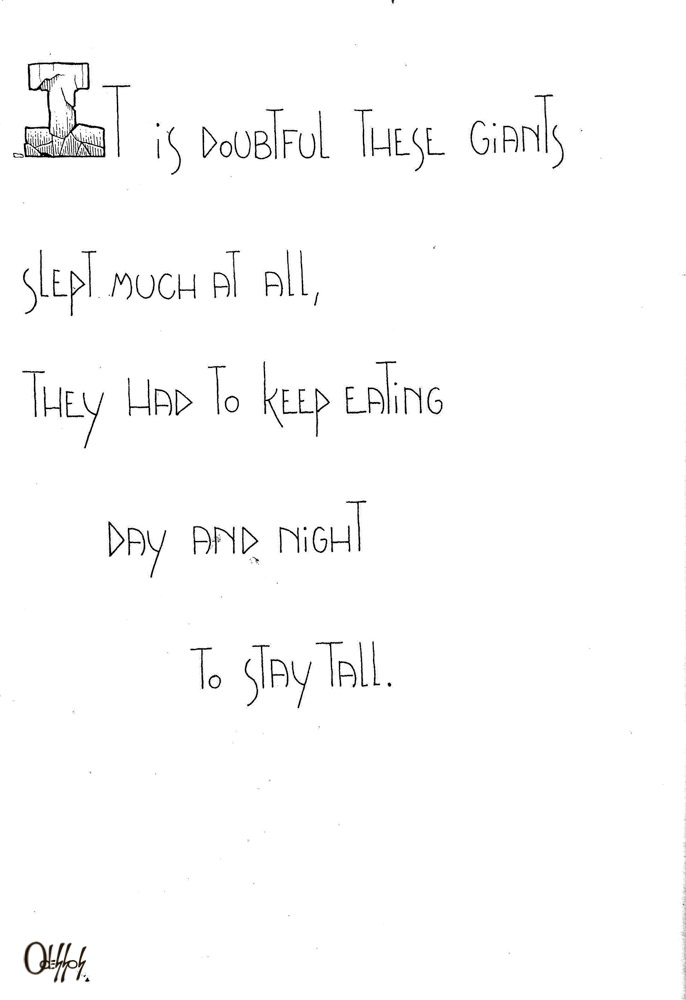 IT iS DOUBTFUL THESE GiANTS
SLEPT MUCH AT ALL,
THEY HAD To KEEP EATiNG
DAY AND NiGHT
To STAY TALL.